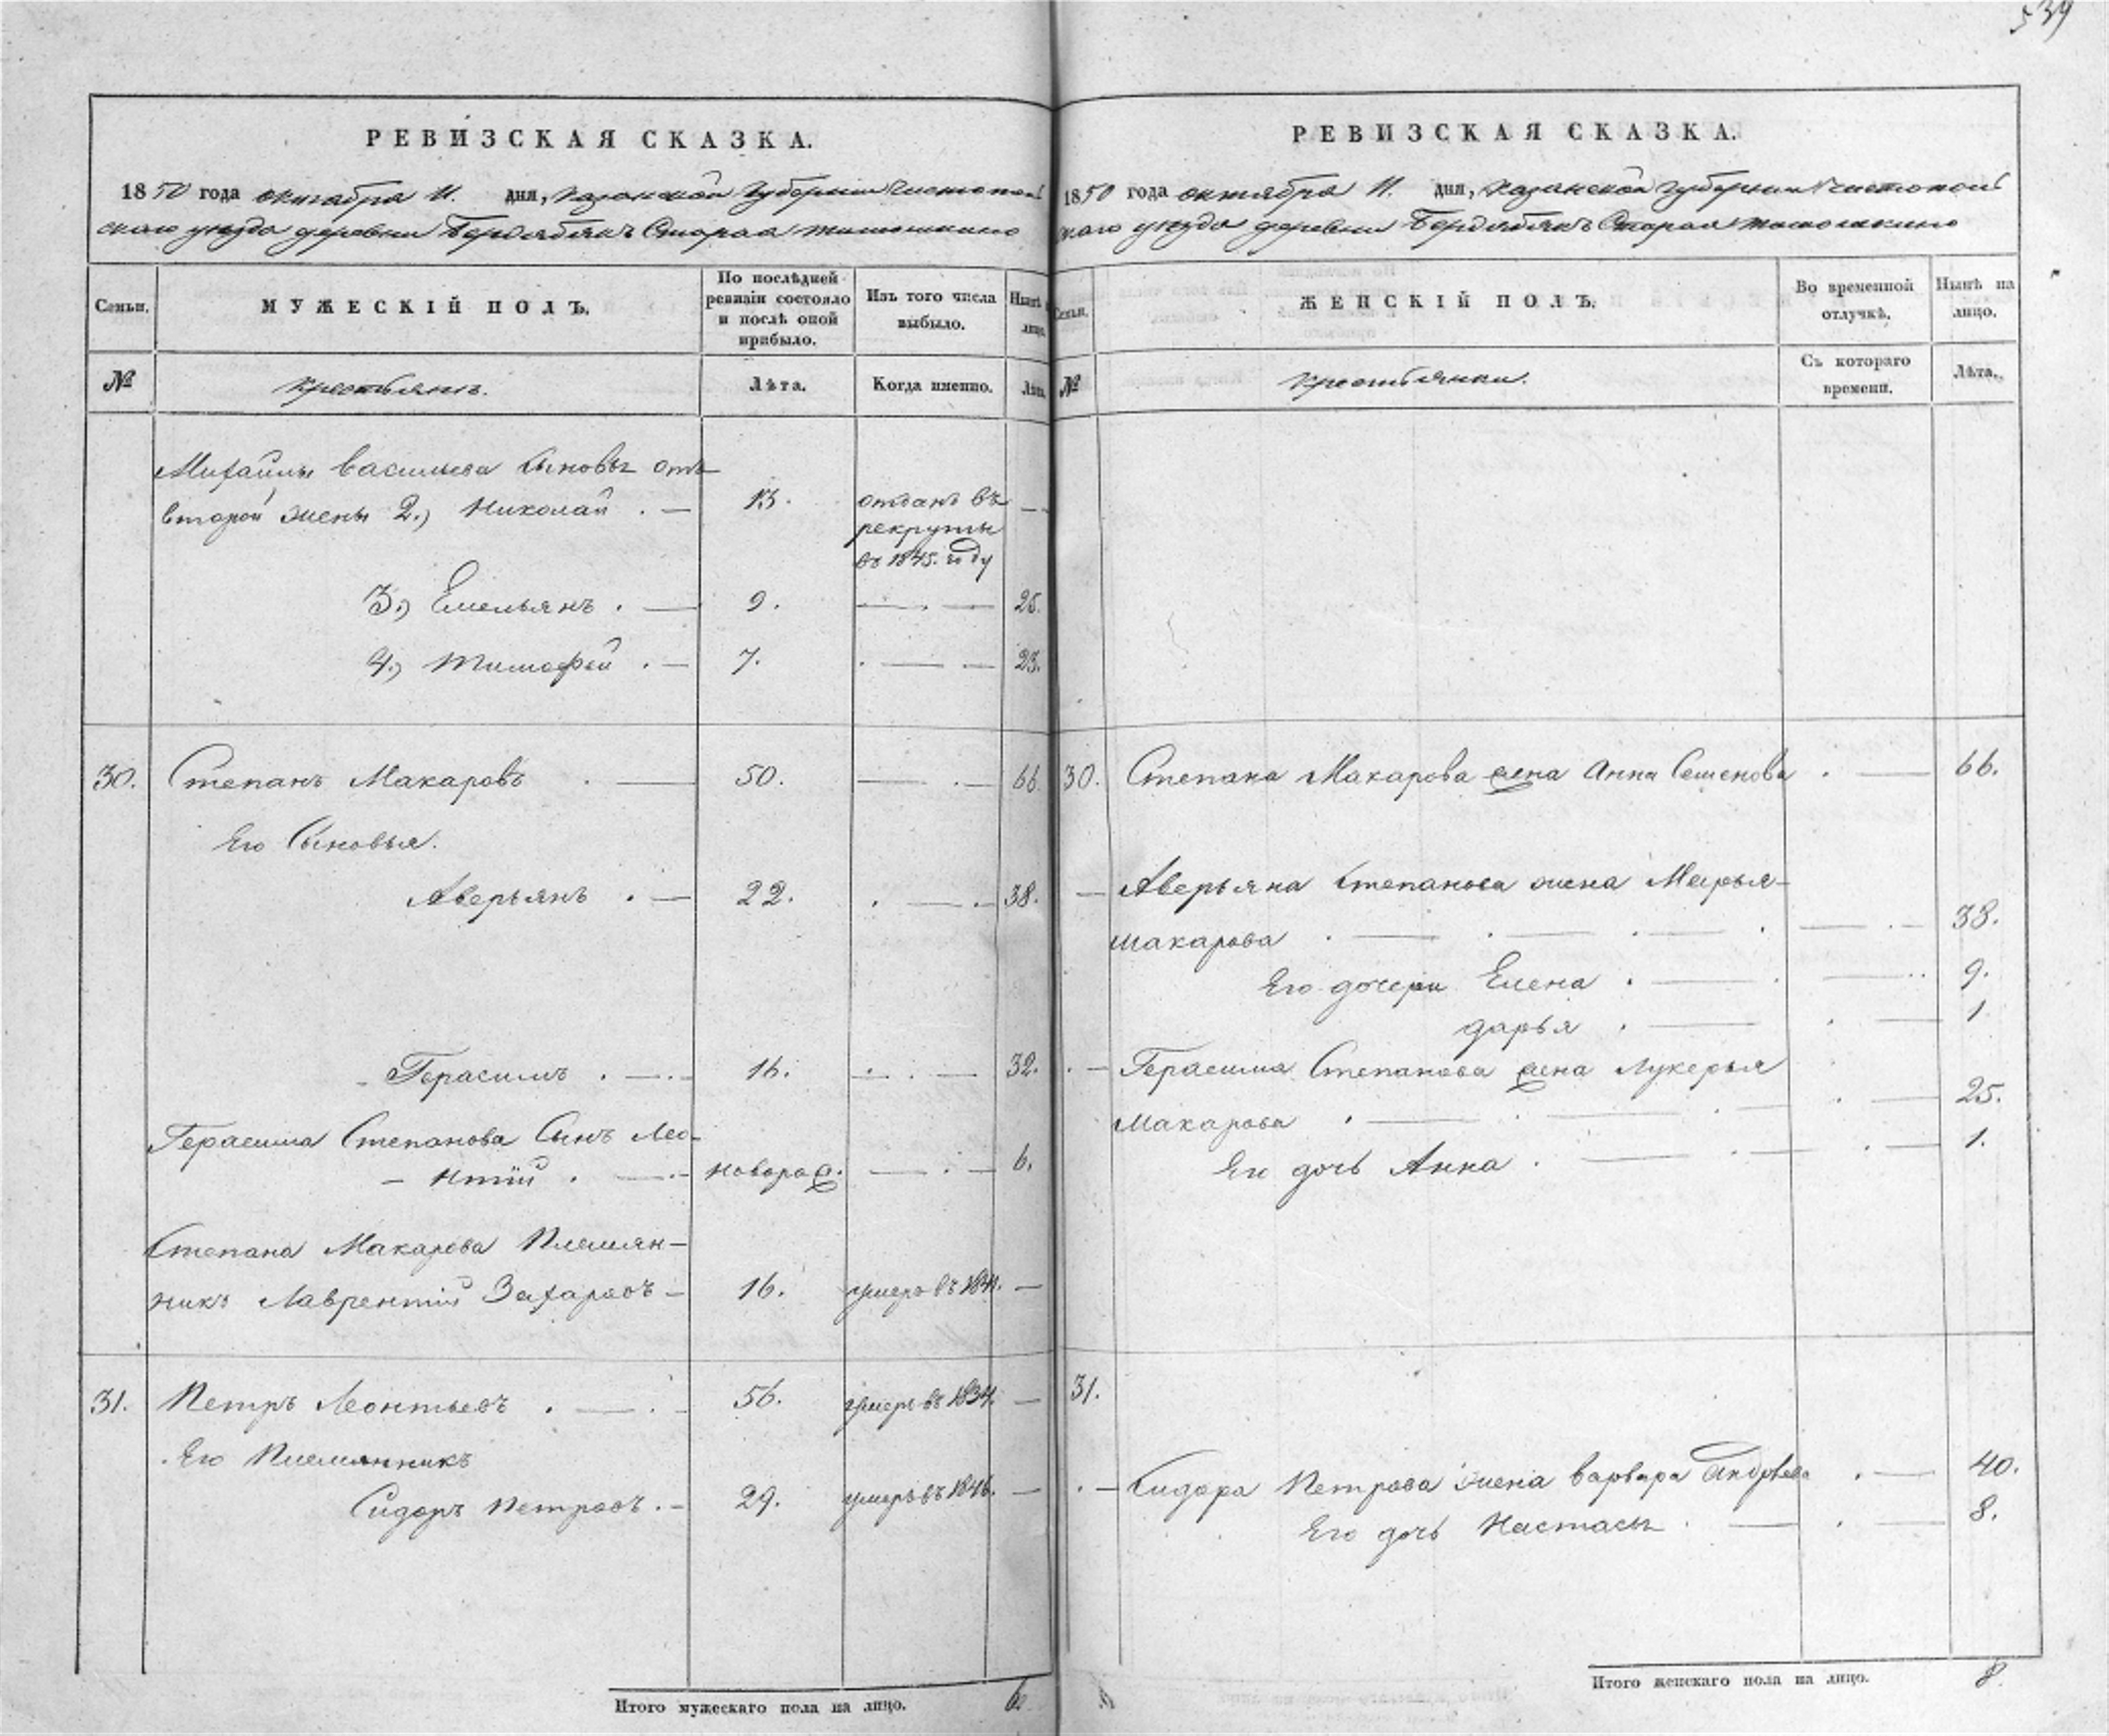 539
РЕВИЗСКАЯ СКАЗКА.
1850 года октября 11. дня, Казанской Губернии Чистополь
скаго уезда деревни Бердебякъ Старая тимошкино
Семьи.
МУЖЕСКІЙ ПОЛЪ.
По послѣдней
ревизіи состояло
и послѣ оной
прибыло.
Изъ того числа
выбыло.
Нынѣ
лицо.
№
крестьянъ.
Лѣта.
Когда именно.
Лѣта.
Михайлы Васильева Сыновья отъ
второй жены 2.) Николай . — 13. отданъ въ —
рекруты
въ 1845. году
3.) Емельянъ . — 9. — . — 25.
4.) Тимофей . — 7. . — — 23.
30. Степанъ Макаровъ . — 50. — . — 66.
Его Сыновья.
Аверьянъ . — 22. . — . — 38.
Герасимъ . — . - 16. — . . — 32.
Герасима Степанова Сынъ Лео-
— нтій . — . - новорож. — . — 6.
Степана Макарова Племян-
никъ Лаврентій Захаровъ — 16. умеръ въ 1841. —
31. Петръ Леонтьевъ . — . - 56. умеръ въ 1834. —
Его Племянникъ
Сидоръ Петровъ . - 29. умеръ въ 1846. —
Итого мужескаго пола на лицо. 6.
РЕВИЗСКАЯ СКАЗКА.
1850 года октября 11. дня, Казанской Губернии Чистополь
скаго уезда деревни Бердебякъ Старая тимошкино
Семьи.
ЖЕНСКІЙ ПОЛЪ.
Во временной
отлучкѣ.
Нынѣ на
лицо.
№
крестьянки.
Съ котораго
времени.
Лѣта.
30. Степана Макарова жена Анна Семенова . — 66.
— Аверьяна Степанова жена Марья-
Макарова . — . — . — . — . — 38.
Его дочери Елена . — . — .. 9.
дарья . — . — 1
. — Герасима Степанова жена Лукерья
Макарова . — . — . — . — 25.
Его дочь Анна . — . — . — 1.
31.
. — Сидора Петрова жена варвара Андреева . — 40.
Его дочь Настасья . — . — 8.
Итого женскаго пола на лицо. 8.